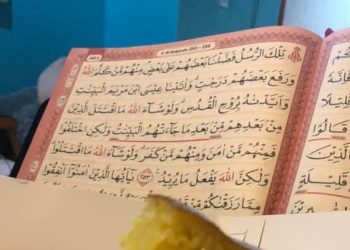 2. Al Baqarah: 253 – 254
تِلْكَ الرُّسُلُ فَضَّلْنَا بَعْضَهُمْ عَلَىٰ بَعْضٍ مِنْهُمْ مَنْ كَلَّمَ اللَّهُ
وَرَفَعَ بَعْضَهُمْ دَرَجَاتٍ وَآتَيْنَا عِيسَى ابْنَ مَرْيَمَ الْبَيِّنَاتِ
وَأَيَّدْنَاهُ بِرُوحِ الْقُدُسِ وَلَوْ شَاءَ اللَّهُ مَا اقْتَتَلَ الَّذِينَ
مِنْ بَعْدِهِمْ مِنْ بَعْدِ مَا جَاءَتْهُمُ الْبَيِّنَاتُ وَلَٰكِنِ اخْتَلَفُوا
فَمِنْهُمْ مَنْ آمَنَ وَمِنْهُمْ مَنْ كَفَرَ وَلَوْ شَاءَ اللَّهُ مَا اقْتَتَلُوا
وَلَٰكِنَّ اللَّهَ يَفْعَلُ مَا يُرِيدُ ٢٥٣ يَا أَيُّهَا الَّذِينَ آمَنُوا أَنْفِقُوا
مِمَّا رَزَقْنَاكُمْ مِنْ
قَالُوا
الَّذِينَ
قَلِيلَةٍ